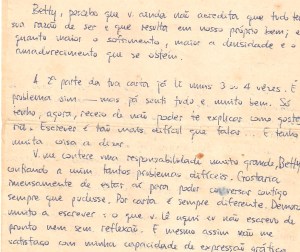 Betty, perceba que v. ainda não acredita que tudo
sua razão de ser e que resulta em nosso próprio bem; e
quanto maior o sofrimento, maior a densidade e o
amadurecimento que se obtém.
A 2ª parte da tua carta já li umas 3 ou 4 vêzes. É
problema sim — mas já senti tudo e muito bem. Só
tenho, agora, receio de não poder te explicar como gosta
ria. Escrever é tão mais difícil que falar... E tenho
muita coisa a dizer.
V. me confere uma responsabilidade muito grande, Betty
confiando a mim tantos problemas difíceis. Gostaria
imensamente de estar aí para poder conversar contigo
sempre que pudesse. Por carta é sempre diferente. Demora
muito a escrever: o que v. lê aqui eu não escrevo de
pronto nem sem reflexão. E mesmo assim não me
satisfaço com minha capacidade de expressão gráfica